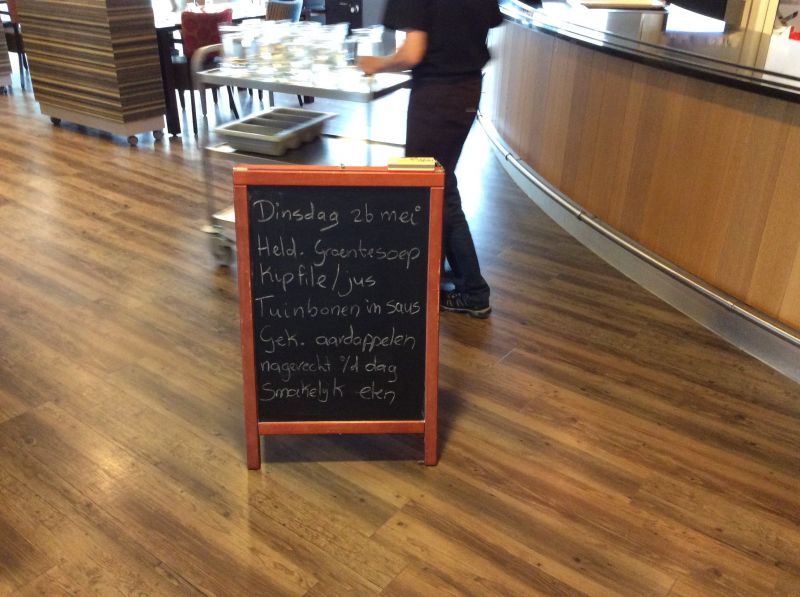 Dinsdag 26 mei
Held. Groentesoep
Kipfile/jus
Tuinbonen in saus
Gek. aardappelen
nagerecht v/d dag
Smakelyk eten